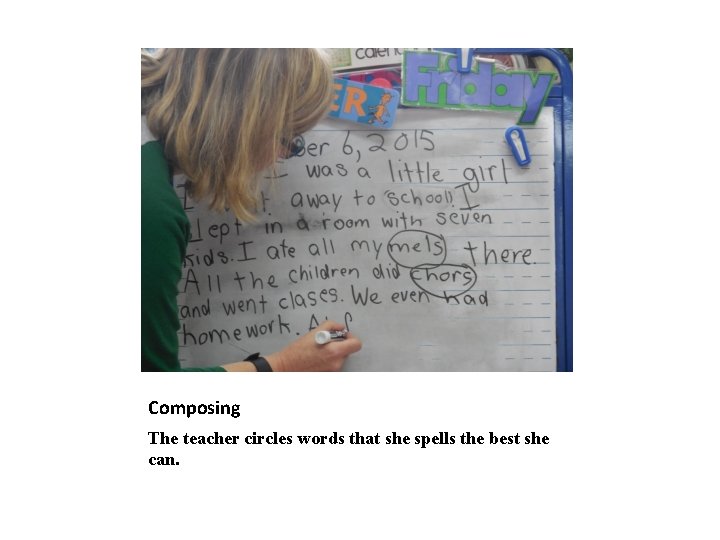 calen
Friday
ER
ber 6, 2015
I was a little girl
I away to school. I
slept in a room with seven
kids. I ate all my mels there.
All the children did chors
and went clases. We even had
homework. At
Composing
The teacher circles words that she spells the best she
can.